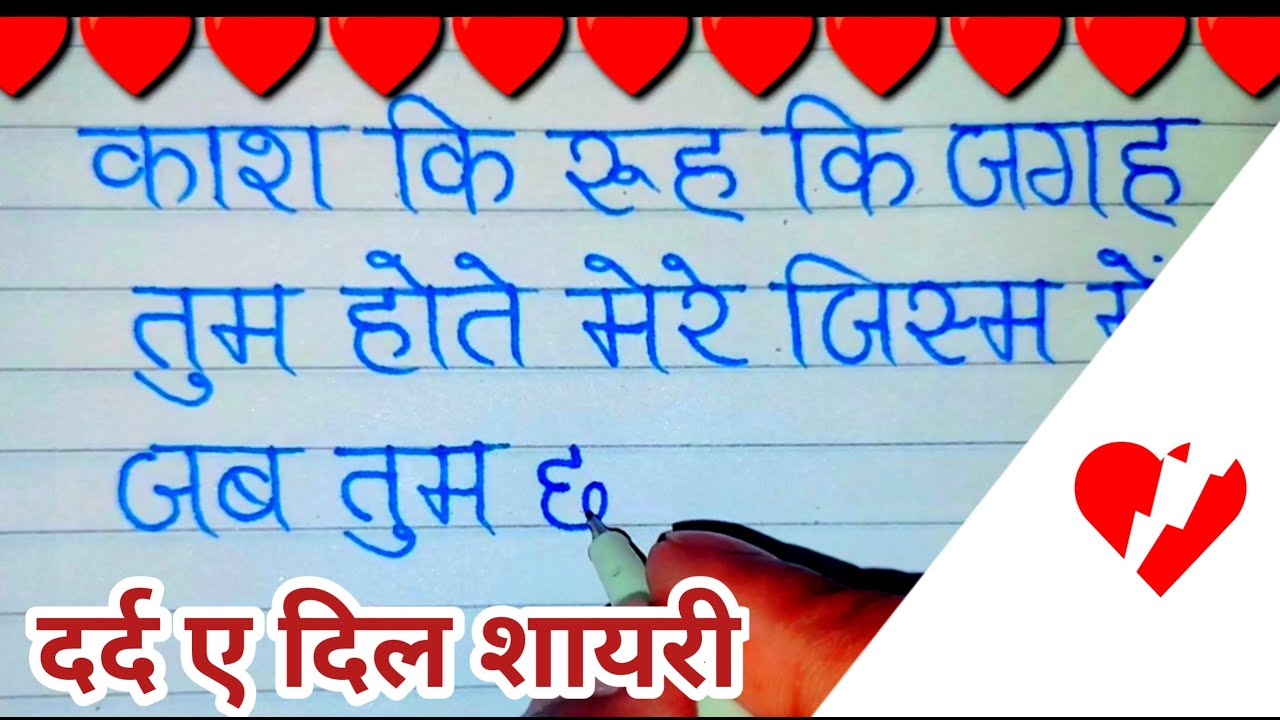 काश कि रूह कि जगह
तुम होते मेरे जिस्म में
जब तुम
दर्द ए दिल शायरी